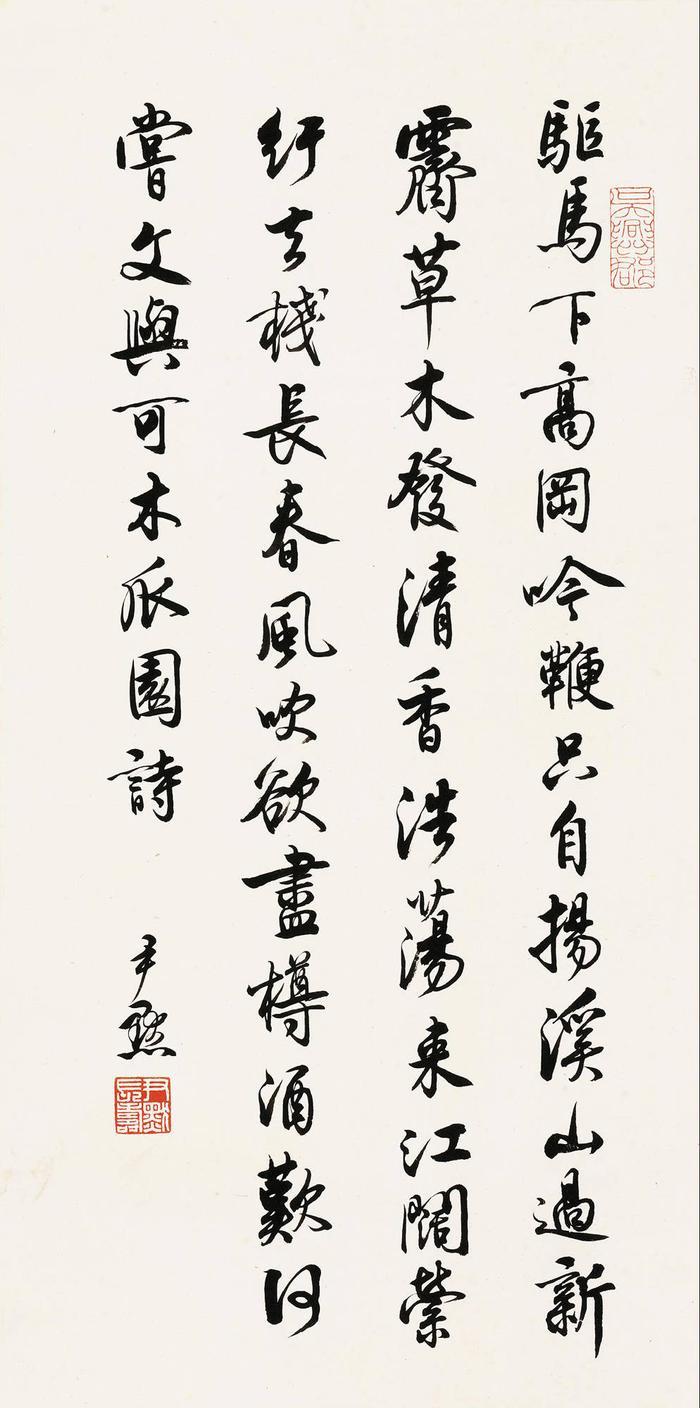 吳興郡
驅馬下高岡吟鞭只自揚溪山過新
霽草木發清香浩蕩東江闊縈
紆去棧長春風吹欲盡樽酒歎何
嘗文與可木瓜園詩
尹默
尹默長壽